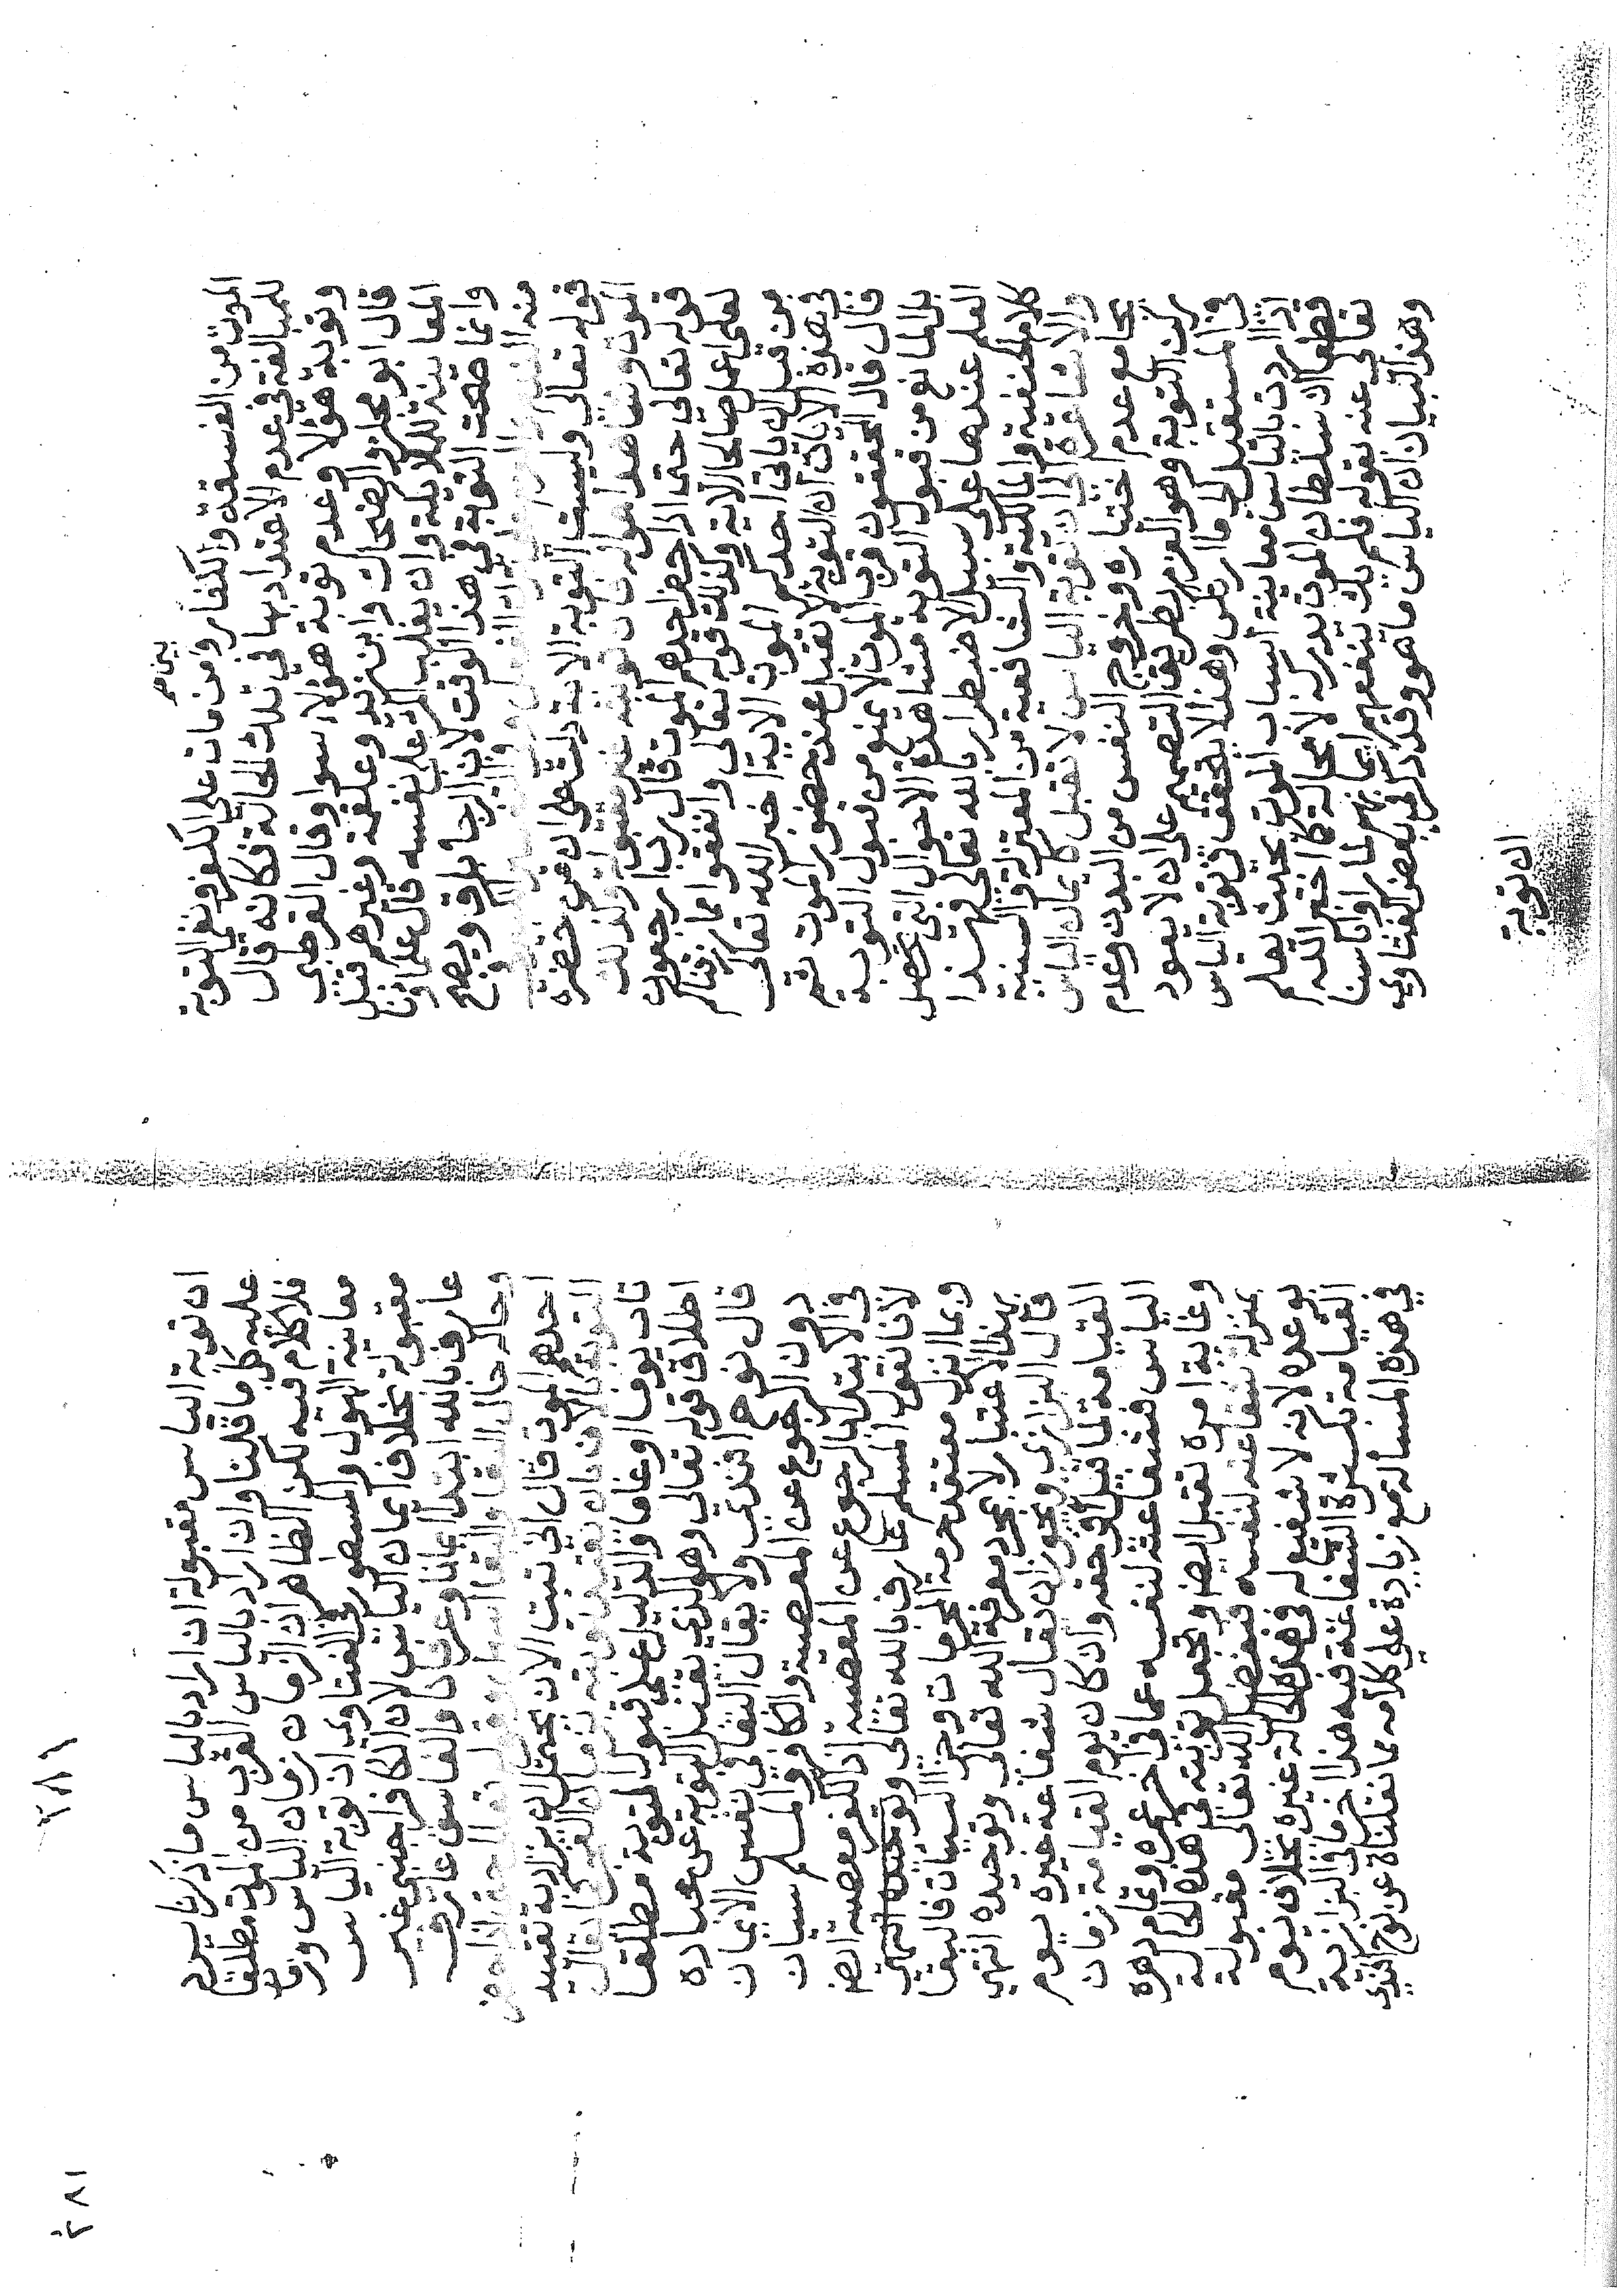 الموت من الفسقة والكفار ومن مات على الكفر في نفي التوبة
بين من
للمبالغة في عدم الاعتداد بها في تلك الحالة فكانه قال
وتوبة هؤلا وعدم توبة هؤلاء سوا وقال القرطبي
قال ابو مجلز والضحاك وابن زيد وعلقمة وغيرهم قبل
المعاينة للملايكة وان يغلب المرء على نفسه قال علماؤنا
وانما صحت التوبة في هذا الوقت لان الرجا باق ويصح
منه الندم
قوله تعالى وليست التوبة الاية دلت على ان من حضره
الموت وشاهد اهواله فان توبته غير مقبولة وكذلك
قوله تعالى حتى اذا حضر احدهم الموت قال رب ارجعون
لعلي اعمل صالحا الاية وكذلك قوله تعالى وانفقوا مما رزقناكم
من قبل ان ياتي احدكم الموت الاية اخبر الله تعالى
في هذه الايات ان التوبة لا تقبل عند حضور الموت ثم
قال قال المحققون قرب الموت لا يمنع من قبول التوبة
بل المانع من قبول التوبة مشاهدة الاحوال التي يحصل
العلم عندها على سبيل الاضطرار بالله تعالى فهذا
كلام الحنفية والمالكية والشافعية من المعتزلة والسنية
والاشاعرة ان توبة الياس لا تقبل كايمان الياس
بجامع عدم اختياره وخروج النفس من البدن وعدم
ركن التوبة وهو العزم بطريق التصميم على ان لا يعود
في المستقبل الى ما ارتكب وهذا لا يتحقق في توبة الياس
اذا اردت بالياس معاينة اسباب الموت بحيث يعلم
قطعا ان سلطان الموت يدركه لا محالة كما اخبر الله
تعالى عنه بقوله فلم يك ينفعهم ايمانهم لما راوا باسنا
وهذا البيان ان الياس ما هو وقد ذكر في بعض الفتاوي
ان توبة
٢٨٦
ان توبة الياس مقبولة ان اراد بالياس ما ذكرنا يرد
عليه كل ما قلنا وان اراد بالياس القرب من الموت مطلقا
فلا كلام فيه لكن الظاهر ان زمان الياس وزمان
معاينة الهول والمسطور في الفتاوي ان توبة الياس
مقبولة بخلاف ايمان الياس لان الكافر اجنبي غير
عارف بالله ابتدا ايمانا وعرفانا والفاسق عارف
وحاله حال البقا والبقا اسهل وقوله تعالى حتى اذا حضر
احدهم الموت قال اني تبت الان يحتمل ان يراد به تقييد
التوبة بالان فان تقييد توبته بزمان
تاب يوما او عاما والدليل على قبول التوبة مطلقا
اطلاق قوله تعالى وهو الذي يقبل التوبة عن عباده
قال نوح افندي ولا يقال البقا في نفس الايمان
دون الرجوع عن المعصية والكافر والمسلم سيان
في الابتدا بالرجوع عن المعصية اذ الكفر معصية ايضا
لانا نقول المسلم عارف بالله تعالى وتوحيده
وبما انزل معتقد حرمة المحرمات وجزا السيات فالبقا
بهذا الاعتبار لا بمجرد معرفة الله تعالى وتوحيده انتهى
قال البزازي ويجوز ان يقال شفاعة غيره يوم
القيامة لما قبل في حقه وان كان يوم القيامة زمان
الياس فشفاعته لنفسه عما في اخر عمره وتمام دهره
وغاية امره تقبل ايضا وتجعل توبته في هذه الحالة
بمنزلة شفاعته لنفسه فبفضل الله تعالى مقبولة
بوعده لانه لا شفيع له في هذه الحالة غيره بخلاف يوم
القيامة لكثرة الشفاعة فيه هذا اخر ما في البزازية
في هذه المسالة مع زيادة على كلامه مما نقلناه عن نوح افندي
٢٨٦